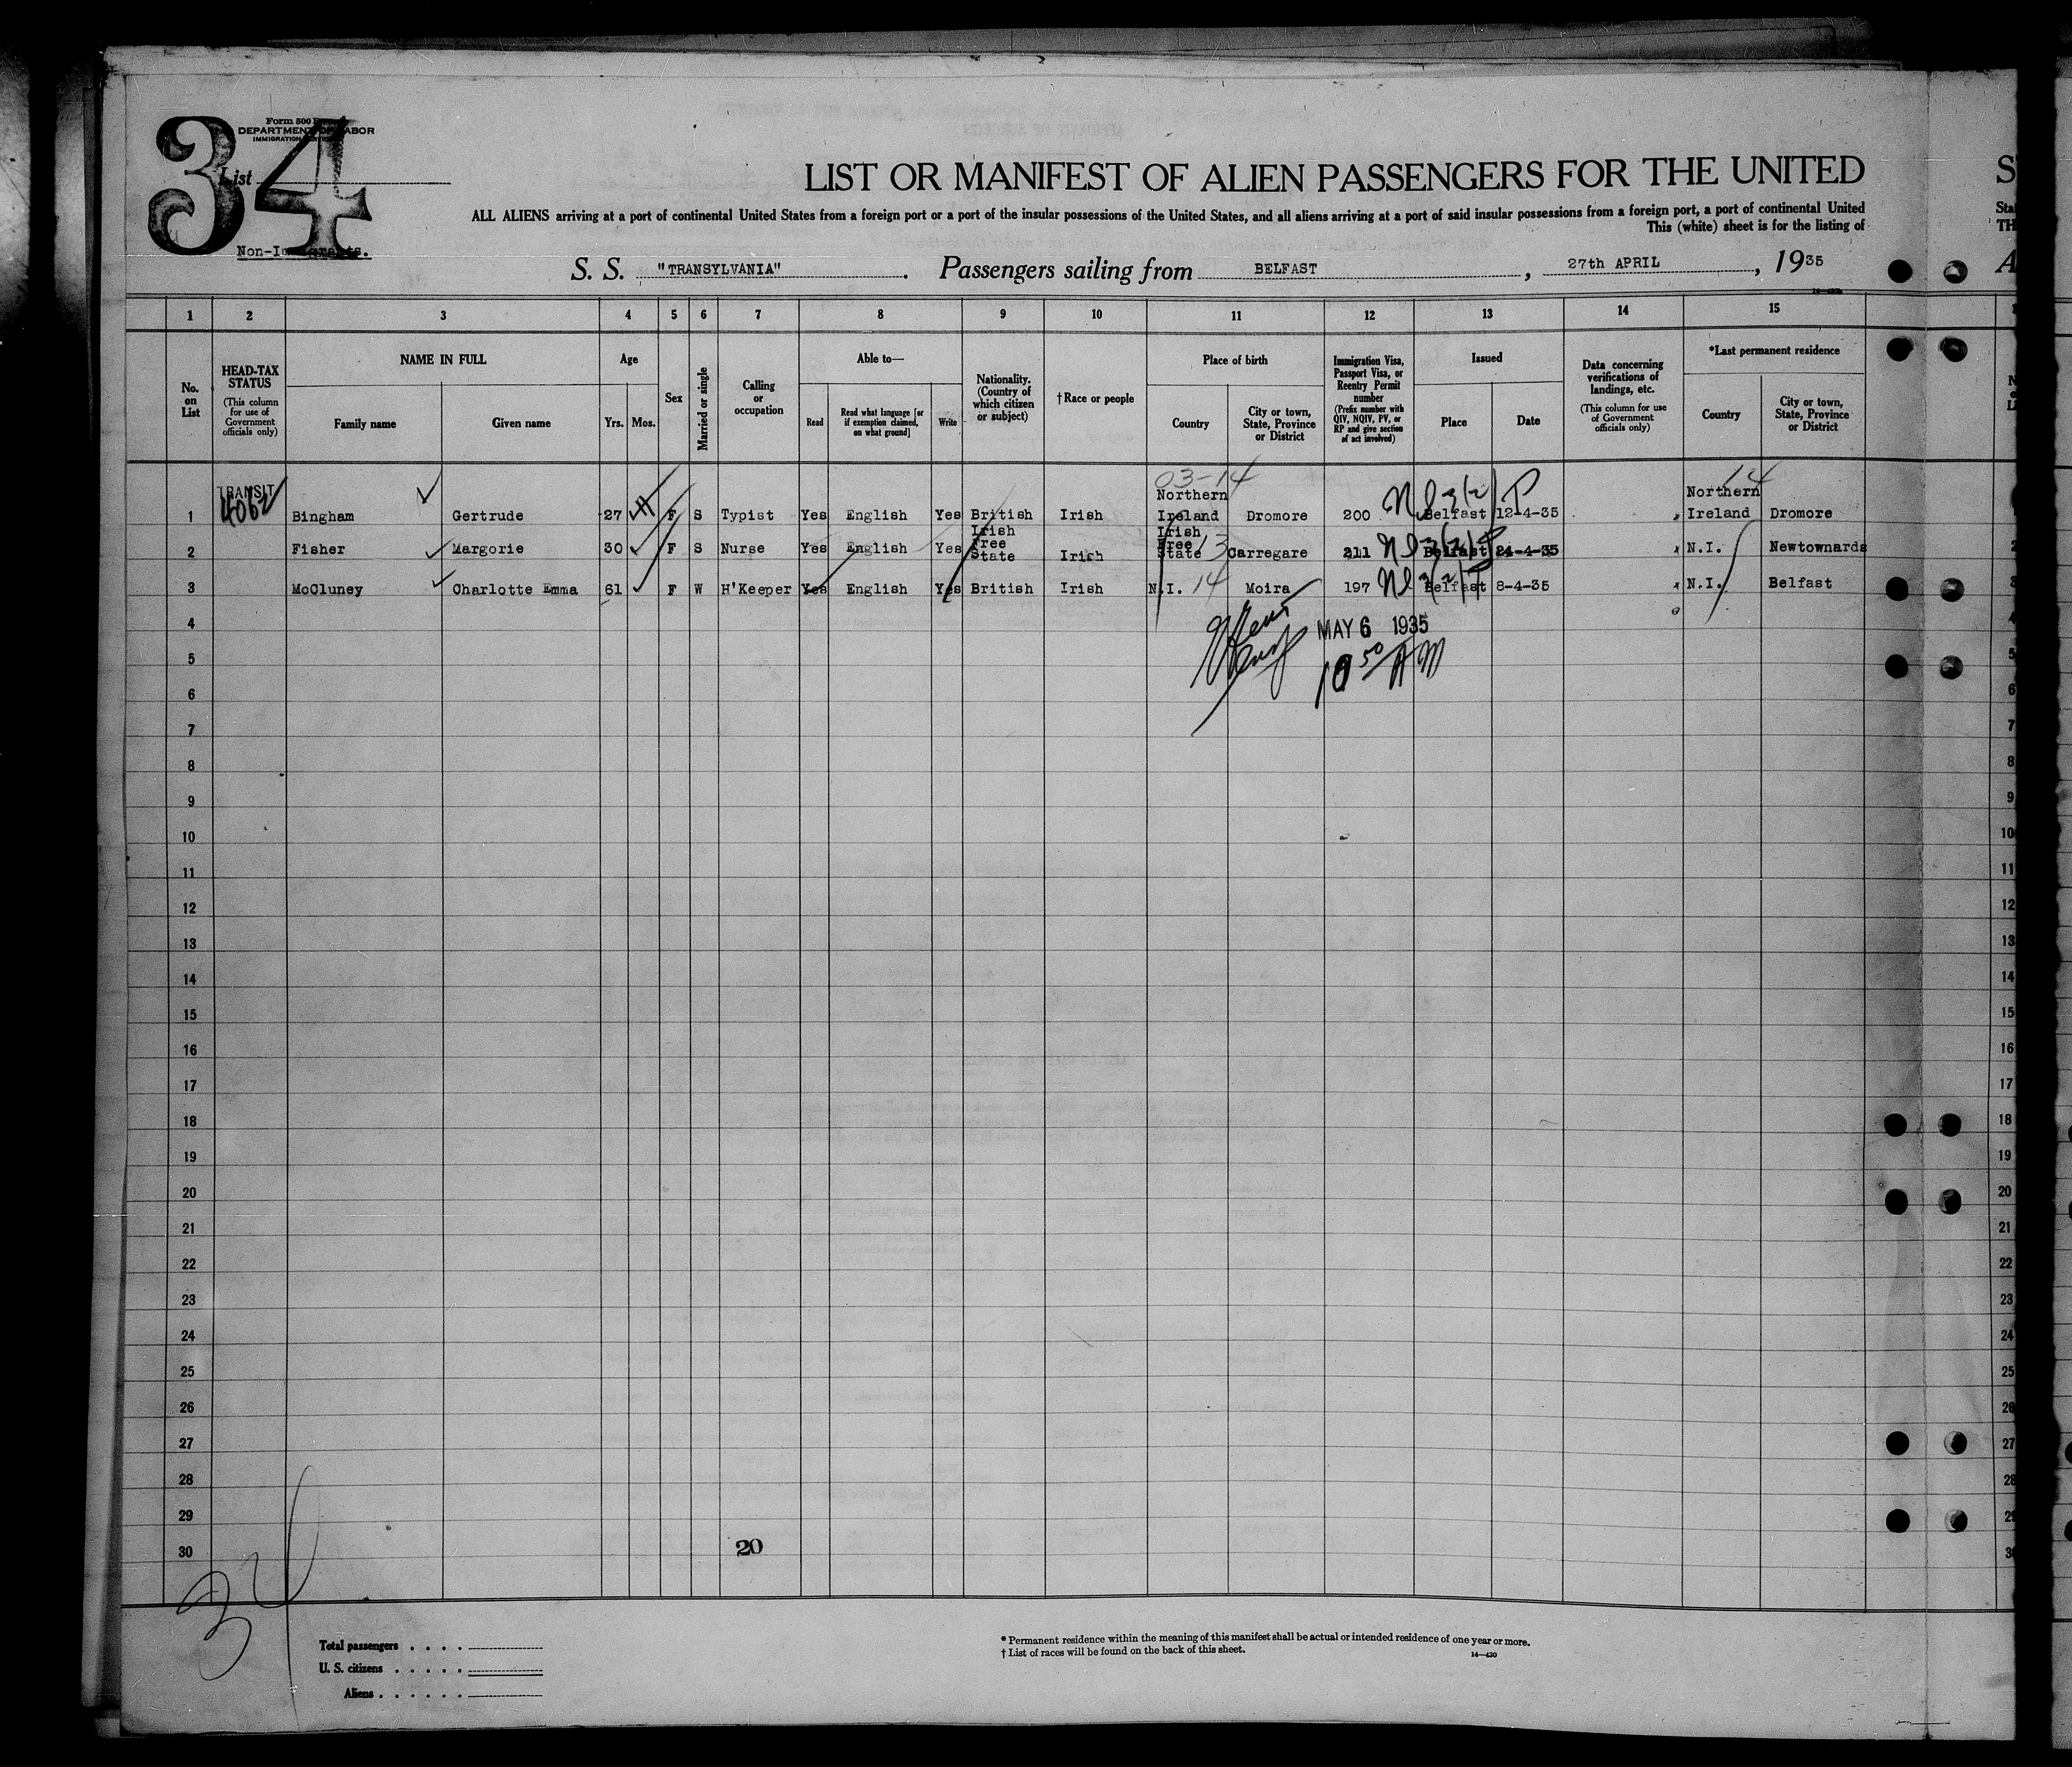 34
Form 500
DEPARTMENT OF LABOR
IMMIGRATION
List
Non-Immigrants.
LIST OR MANIFEST OF ALIEN PASSENGERS FOR THE UNITED
ALL ALIENS arriving at a port of continental United States from a foreign port or a port of the insular possessions of the United States, and all aliens arriving at a port of said insular possessions from a foreign port, a port of continental United
This (white) sheet is for the listing of
S. S. "TRANSYLVANIA". Passengers sailing from BELFAST, 27th APRIL, 1935
1 2 3 4 5 6 7 8 9 10 11 12 13 14 15
No. on List
HEAD-TAX STATUS
(This column for use of Government officials only)
NAME IN FULL
Family name
Given name
Age
Yrs. Mos.
Sex
Married or single
Calling or occupation
Able to—
Read
Read what language [or if exemption claimed, on what ground]
Write
Nationality. (Country of which citizen or subject)
†Race or people
Place of birth
Country
City or town, State, Province or District
Immigration Visa, Passport Visa, or Reentry Permit number
(Prefix number with QIV, NQIV, PV, or RP and give section of act involved)
Issued
Place
Date
Data concerning verifications of landings, etc.
(This column for use of Government officials only)
*Last permanent residence
Country
City or town, State, Province or District
03-14
14
TRANSIT
4062
1 Bingham Gertrude 27 F S Typist Yes English Yes British Irish Northern Ireland Dromore 200 Belfast 12-4-35 Northern Ireland Dromore
2 Fisher Margorie 30 F S Nurse Yes English Yes Irish Free State Irish Irish Free State 13 Carregare 211 Belfast 24-4-35 N.I. Newtownards
3 McCluney Charlotte Emma 61 F W H'Keeper Yes English Yes British Irish N.I. 14 Moira 197 Belfast 8-4-35 N.I. Belfast
4
MAY 6 1935
5
10 50 AM
6
7
8
9
10
11
12
13
14
15
16
17
18
19
20
21
22
23
24
25
26
27
28
29
30
20
34
Total passengers . . . .
U. S. citizens . . . . .
Aliens . . . . . .
* Permanent residence within the meaning of this manifest shall be actual or intended residence of one year or more.
† List of races will be found on the back of this sheet.
14—430